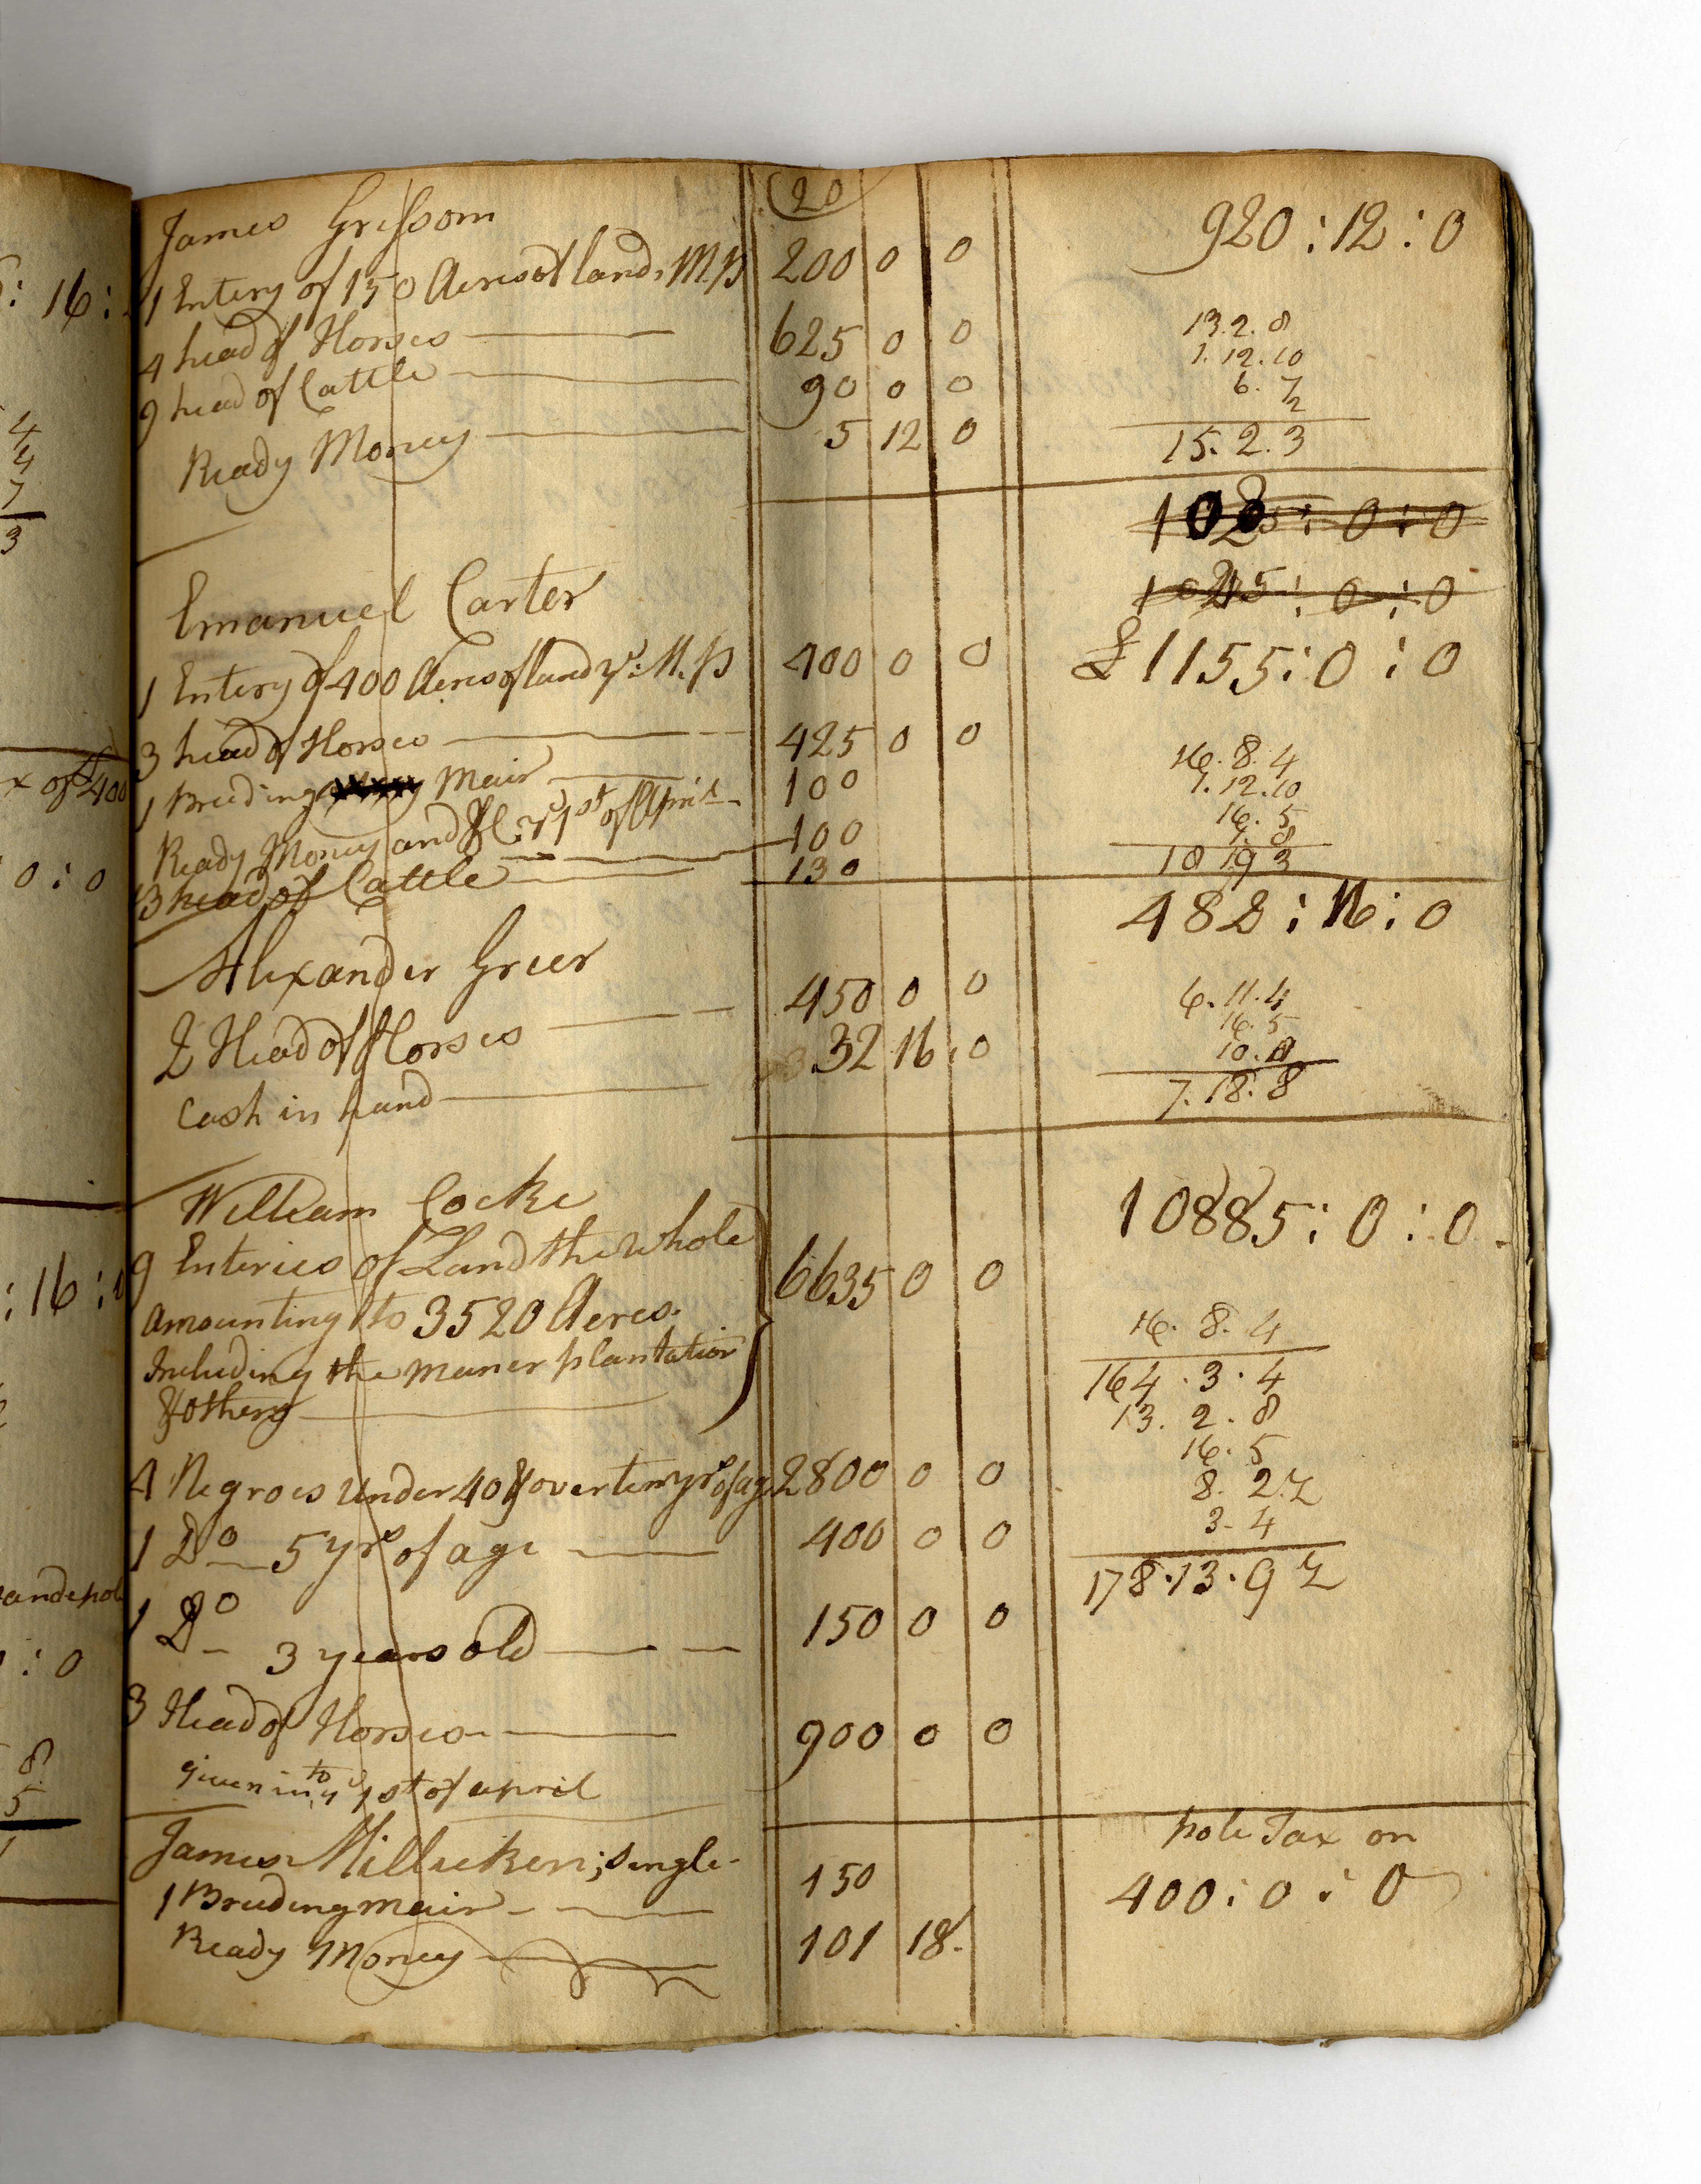 (20)
James Grissom 920 : 12 : 0
1 Entery of 150 Acres of land, M.P 200 0 0
4 head of Horses 625 0 0
9 head of Cattle 90 0 0
Ready Money 5 12 0
13. 2. 8
1. 12. 10
6. 7
2
15. 2. 3
: 0 : 0
: 0 : 0
Emanuel Carter
£1155 : 0 : 0
1 Entery of 400 Acres of land ye: M. P 400 0 0
3 head of Horses 425 0 0
1 Breeding Mair 100
Ready Money and &c. ye 1st of April 100
13 head of Cattle 130
16. 8. 4
1. 12. 10
16. 5
1. 8
18 19 3
Alexander Greer 482 : 16 : 0
2 Head of Horses 450 0 0
Cash in hand 32 16 0
6. 11. 4
16. 5
10.
7. 18. 8
William Cocke 10885 : 0 : 0
9 Enteries of Land the whole 6635 0 0
amounting to 3520 Acres.
Including the maner plantation
& others
4 Negroes under 40 & over ten yrs of age 2800 0 0
1 Do 5 yrs of age 400 0 0
1 Do 3 years old 150 0 0
3 Head of Horses 900 0 0
given in to ye 1st of april
16. 8. 4
164. 3. 4
13. 2. 8
16. 5
8. 2. 2
3. 4
178. 13. 9 2
James Millicken; single pole Tax on
1 Breeding mair 150 400 : 0 : 0
Ready Money 101 18.
: 16 :
4
4
7
3
x of 400
0 : 0
: 16 :
: 0
8
5